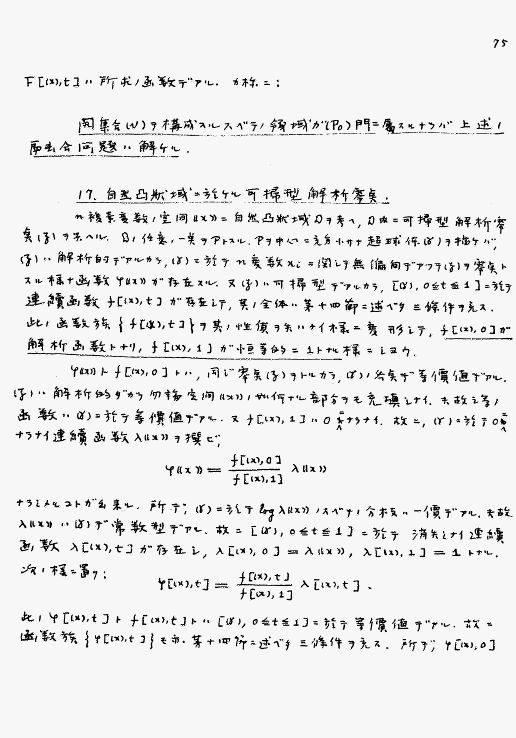 75
F[(x),t] ハ 所求ノ函数デアル. カ称ニ:
同集合(W)ヲ構成スルスベテノ領域ガ(P₀)門ニ属スルナラバ 上述ノ
合同問題ハ解ケル.
17. 自然凸状域ニ於ケル可掃型解析零点.
n複素変数ノ空間((x))ニ自然凸状域Dヲ考ヘ, D内ニ可掃型解析零
点(f)ヲ与ヘル. Dノ任意ノ一点ヲPトスル. Pヲ中心ニ充分小サナ超球体(γ)ヲ描ケバ,
(f)ハ解析的デアルカラ, (γ)ニ於テn変数xᵢニ関シテ無偏向デアツテ(f)ヲ零点ト
スル様ナ函数 φ((x)) ガ存在スル. 又(f)ハ可掃型デアルカラ, [(γ), 0≦t≦1]ニ於テ
連続函数 f[(x),t] ガ存在シテ, 其ノ全体ハ第十四節ニ述ベタ三條件ヲ充ス.
此ノ函数族{f[(x),t]}ヲ其ノ性質ヲ失ハナイ様ニ変形シテ, f[(x),0]ガ
解析函数トナリ, f[(x),1]ガ恒等的ニ1トナル様ニシヨウ.
φ((x))ト f[(x),0]トハ, 同ジ零点(f)ヲトルカラ, (γ)ノ各点デ等價値デアル.
(f)ハ解析的ダカラ勿論空間((x))ノ如何ナル部分ヲモ充填シナイ. 夫故之等ノ
函数ハ(γ)ニ於テ等價値デアル. 又 f[(x),1]ハ0ニナラナイ. 故ニ, (γ)ニ於テ0ニ
ナラナイ連続函数λ((x))ヲ撰ビ,
φ((x)) = f[(x),0] / f[(x),1] λ((x))
ナラシメルコトガ出来ル. 所デ, (γ)ニ於テ log λ((x))ノスベテノ分枝ハ一價デアル. 夫故
λ((x))ハ(γ)デ常数型デアル. 故ニ[(γ), 0≦t≦1]ニ於テ 消失シナイ連続
函数 λ[(x),t]ガ存在シ, λ[(x),0] = λ((x)), λ[(x),1] = 1トナル.
次ノ様ニ置ク:
φ[(x),t] = f[(x),t] / f[(x),1] λ[(x),t].
此ノ φ[(x),t]ト f[(x),t]トハ[(γ), 0≦t≦1]ニ於テ等價値デアル. 故ニ
函数族{φ[(x),t]}モ亦第十四節ニ述ベタ三條件ヲ充ス. 所デ, φ[(x),0]